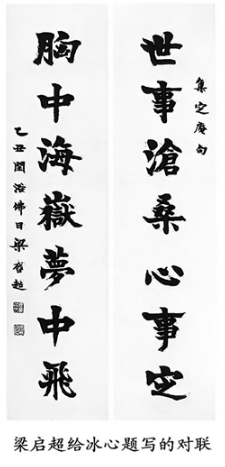 集定盦句
世事滄桑心事定
胸中海嶽夢中飛
乙丑閏浴佛日梁啟超
梁启超给冰心题写的对联